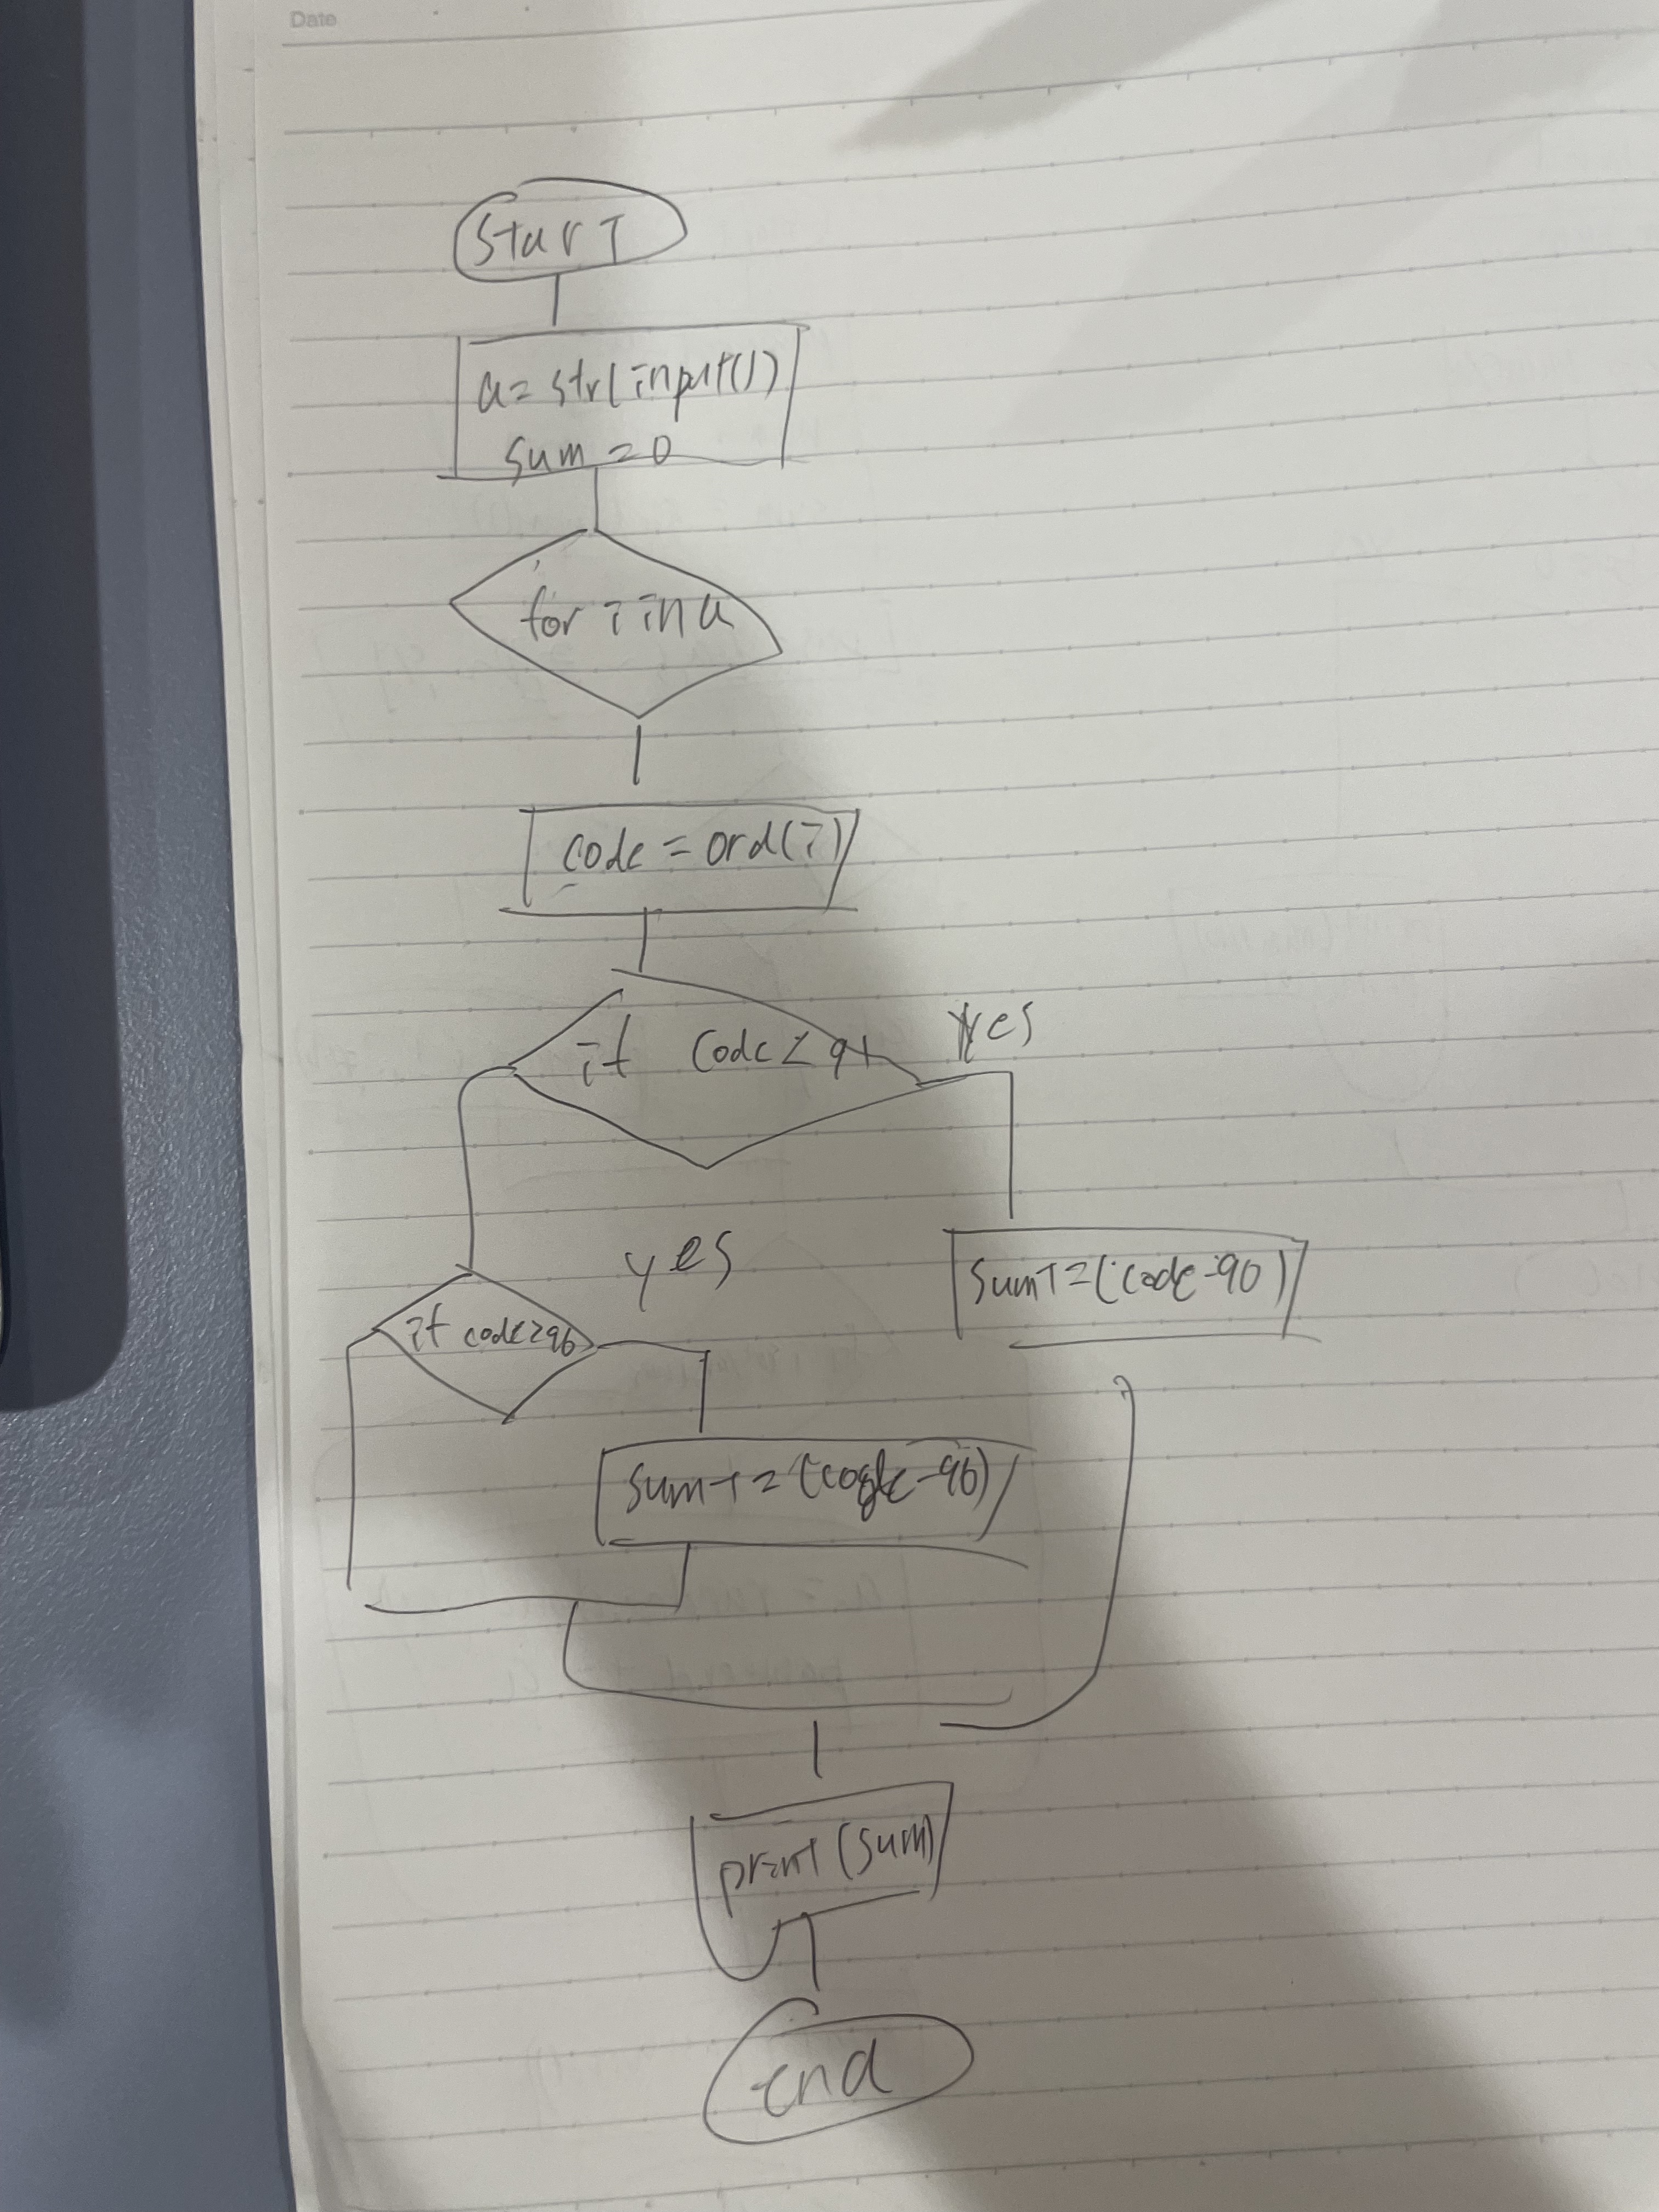 Date
Start
a=str(input())
sum=0
for i in a
code=ord(i)
if code<91
yes
yes
sum+=(code-90)
if code>96
sum+=(code-96)
print(sum)
end